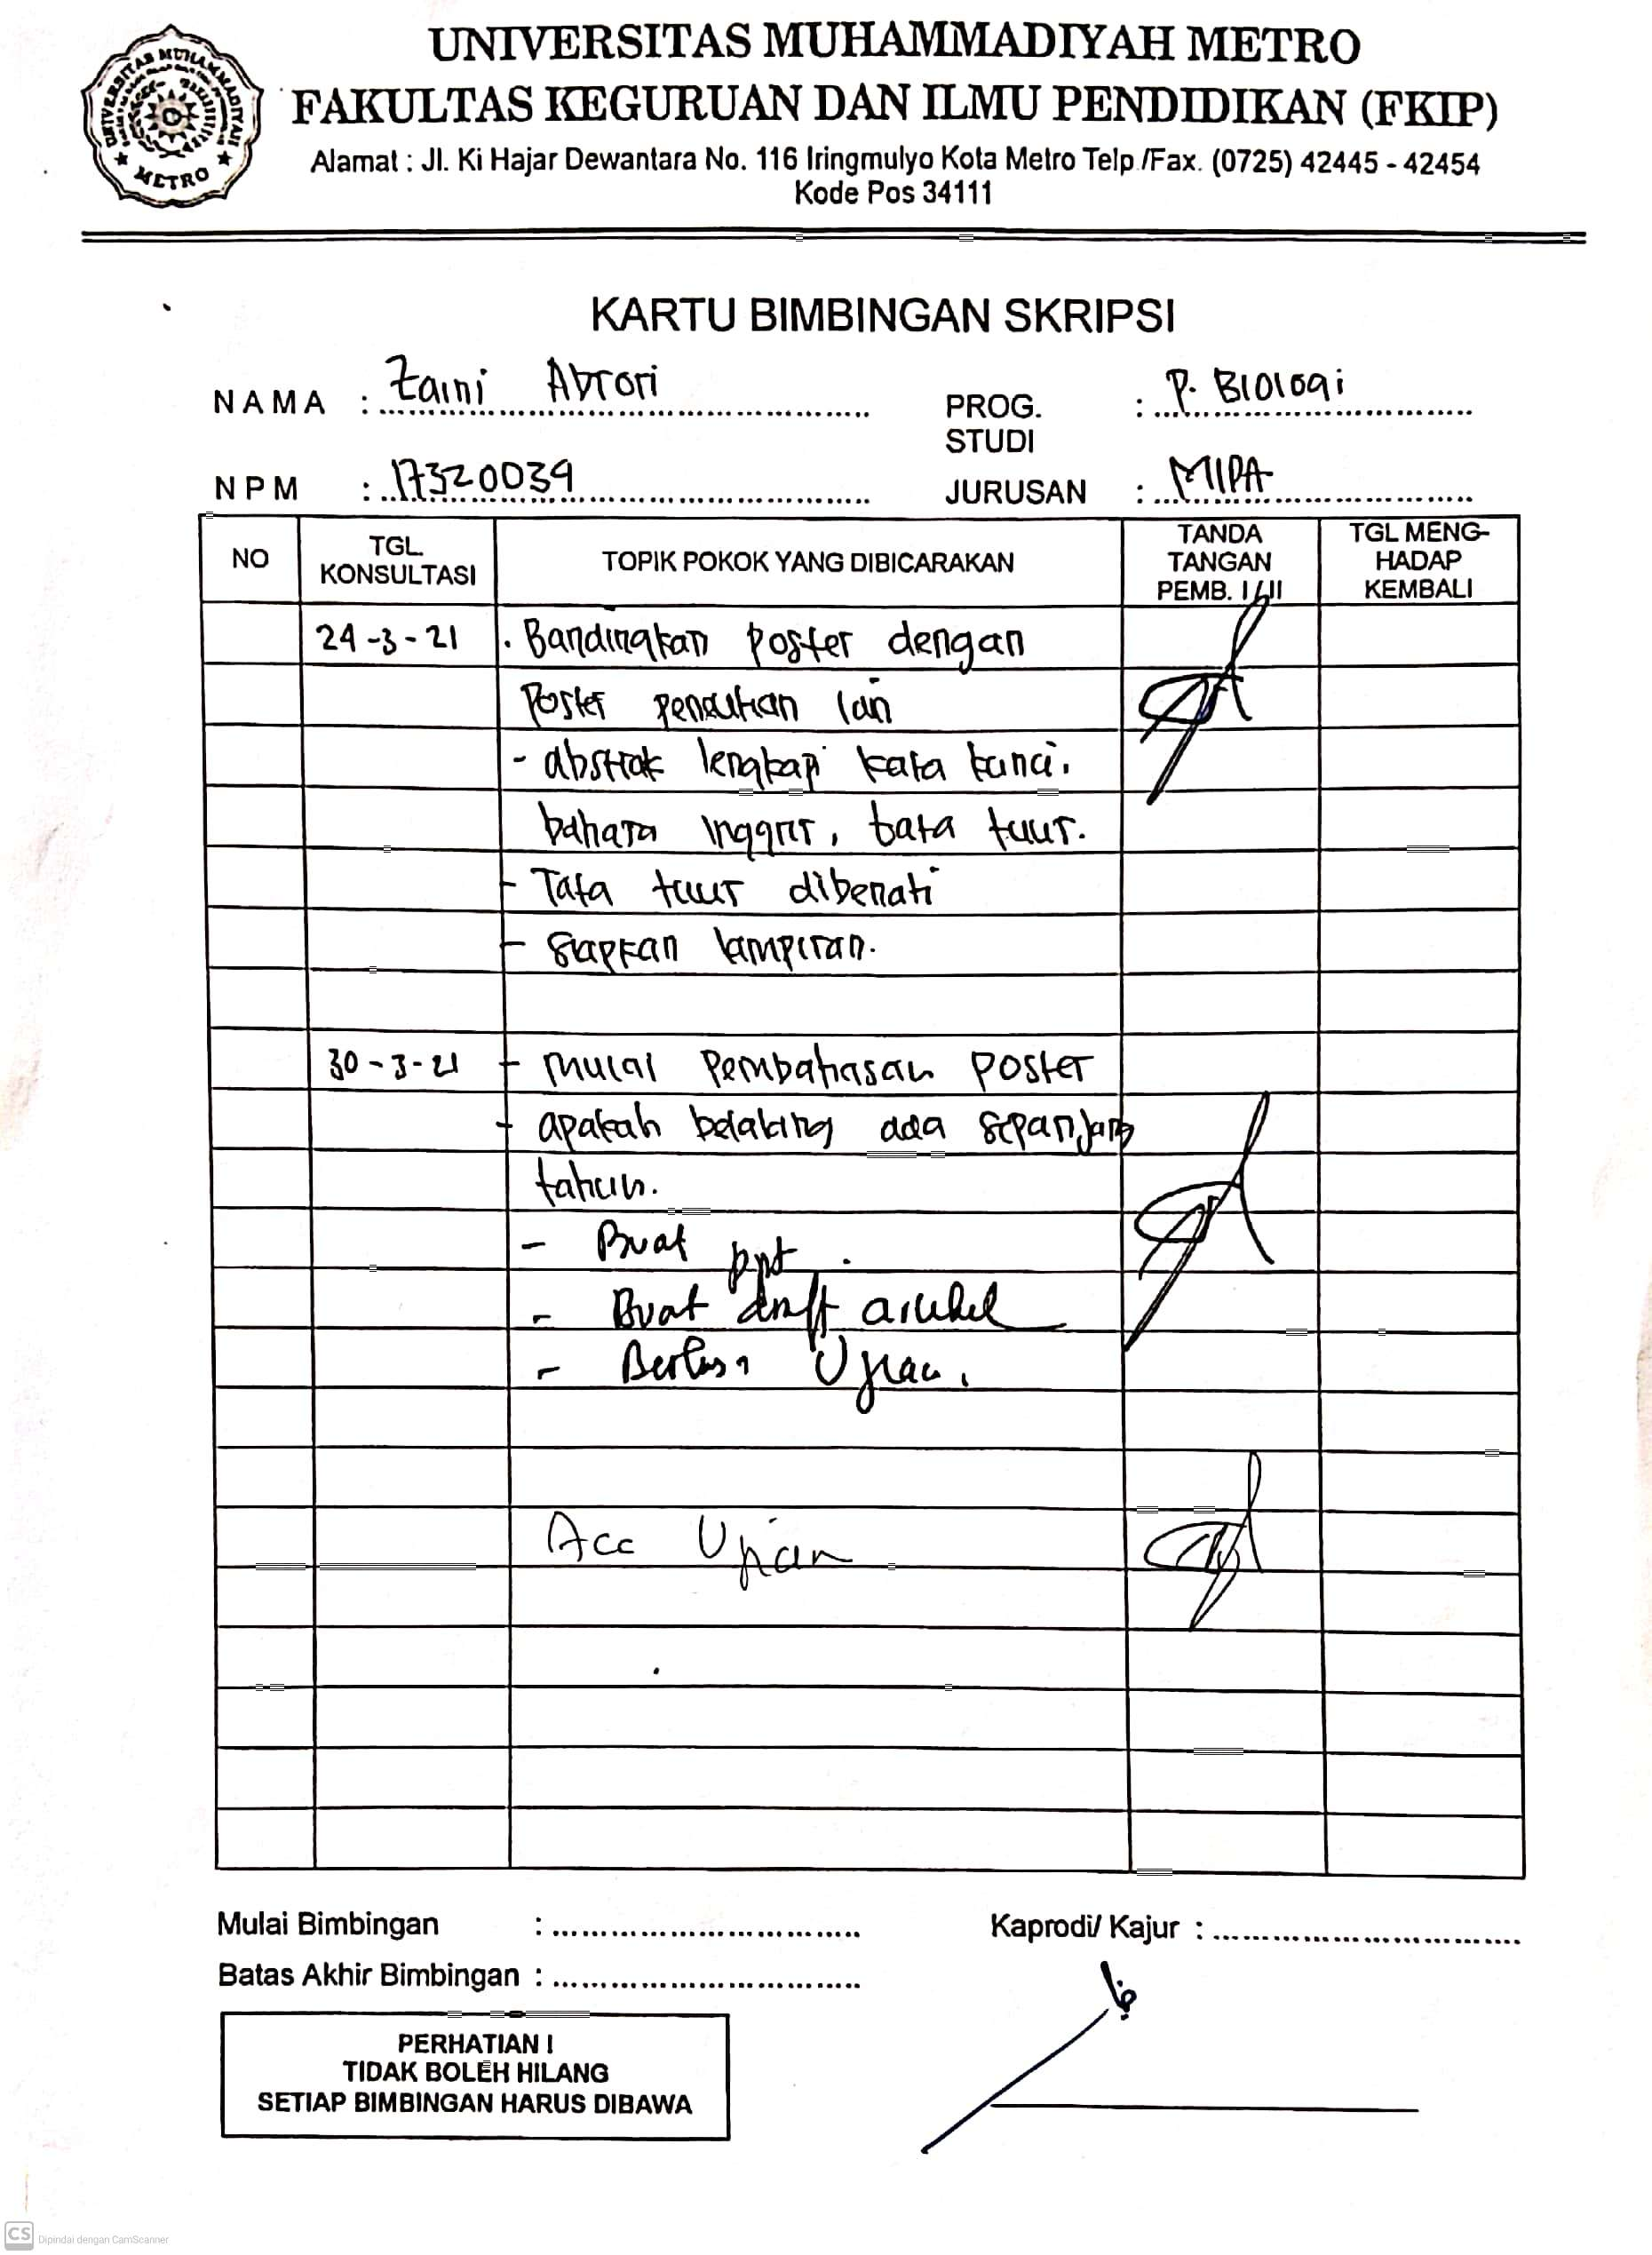 UNIVERSITAS MUHAMMADIYAH METRO
FAKULTAS KEGURUAN DAN ILMU PENDIDIKAN (FKIP)
Alamat : Jl. Ki Hajar Dewantara No. 116 Iringmulyo Kota Metro Telp./Fax. (0725) 42445 - 42454
Kode Pos 34111
UNIVERSITAS MUHAMMADIYAH
METRO
KARTU BIMBINGAN SKRIPSI
NAMA : Zaini Abrori
PROG. STUDI : P. Biologi
NPM : 17320039
JURUSAN : MIPA
NO
TGL. KONSULTASI
TOPIK POKOK YANG DIBICARAKAN
TANDA TANGAN PEMB. I / II
TGL MENG-HADAP KEMBALI
24-3-21 . Bandingkan poster dengan
Poster penelitian lain
- abstrak lengkapi kata kunci.
bahasa inggris, tata tulis.
- Tata tulis dibenahi
- Siapkan lampiran.
30-3-21 - mulai Pembahasan poster
- apakah belalang ada sepanjang
tahun.
- Buat ppt.
- Buat draft artikel
- Ujian.
Acc Ujian
Mulai Bimbingan : 
Kaprodi/ Kajur : 
Batas Akhir Bimbingan : 
PERHATIAN !
TIDAK BOLEH HILANG
SETIAP BIMBINGAN HARUS DIBAWA
CS Dipindai dengan CamScanner